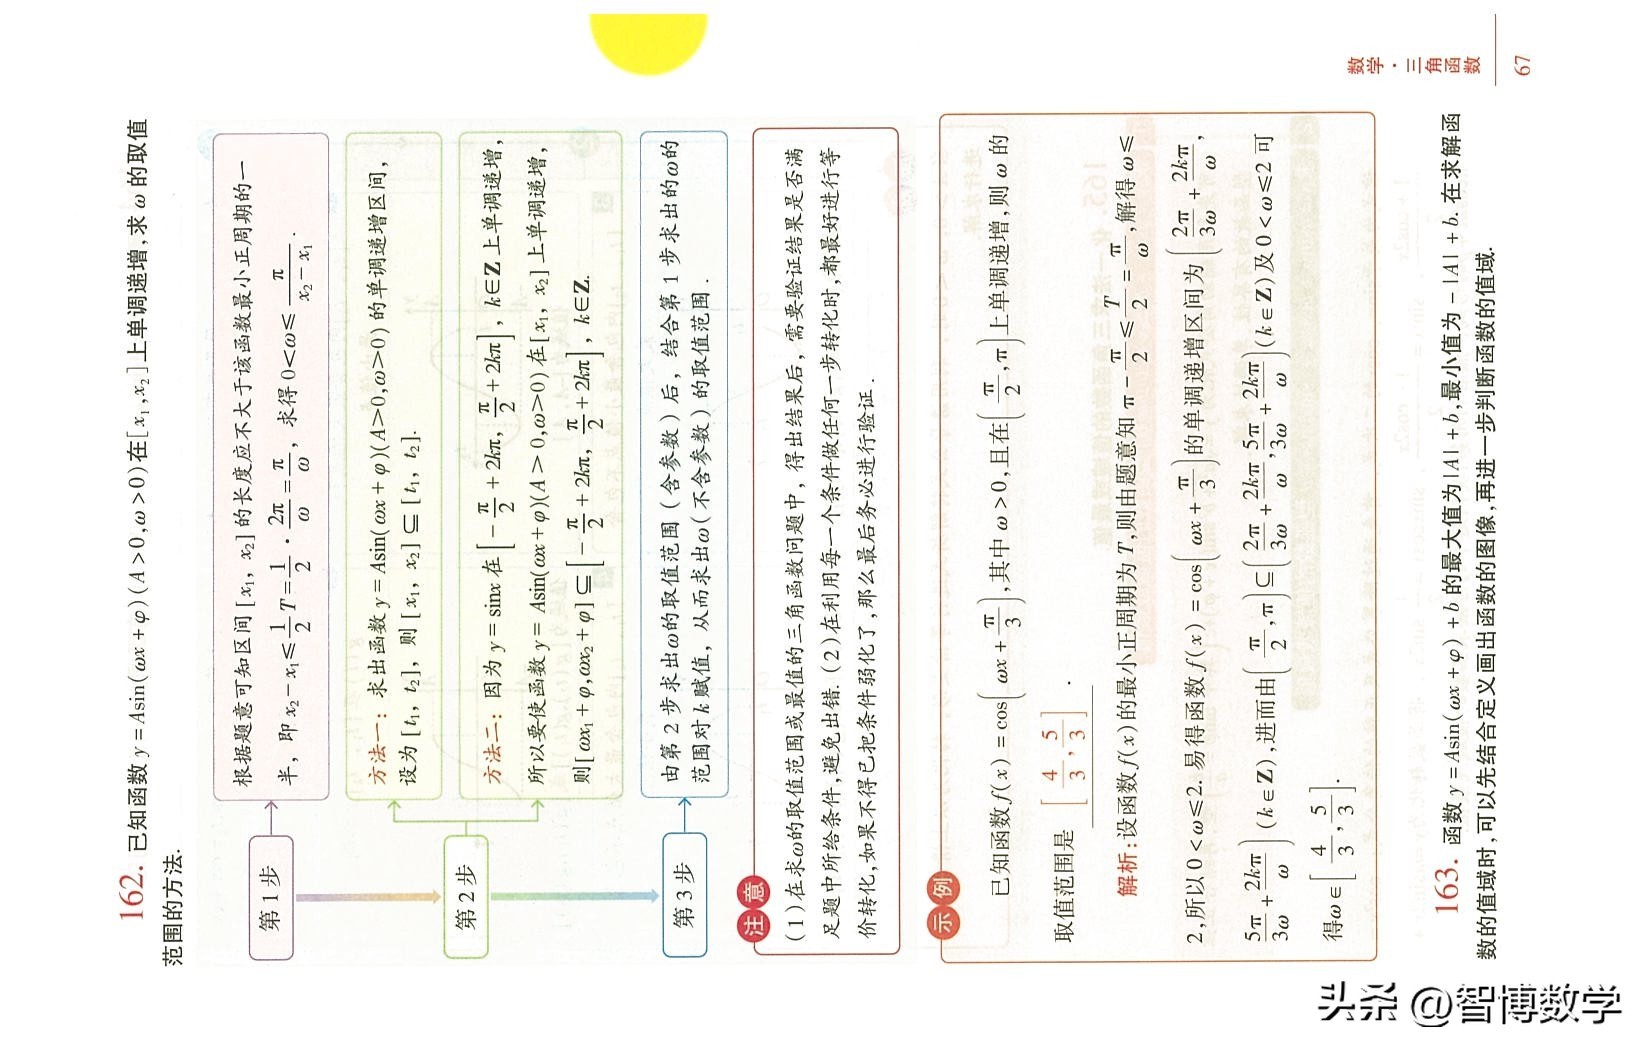 162. 已知函数 y=Asin(ωx+φ)(A>0,ω>0)在[x₁,x₂]上单调递增,求 ω 的取值
范围的方法.
第1步
根据题意可知区间[x₁, x₂]的长度应不大于该函数最小正周期的一
半, 即 x₂-x₁≤1/2T=1/2·2π/ω=π/ω, 求得 0<ω≤π/(x₂-x₁).
第2步
方法一: 求出函数 y=Asin(ωx+φ)(A>0,ω>0)的单调递增区间,
设为[t₁, t₂], 则[x₁, x₂]⊆[t₁, t₂].
方法二: 因为 y=sinx在[-π/2+2kπ, π/2+2kπ], k∈Z上单调递增,
所以要使函数 y=Asin(ωx+φ)(A>0,ω>0)在[x₁, x₂]上单调递增,
则[ωx₁+φ,ωx₂+φ]⊆[-π/2+2kπ, π/2+2kπ], k∈Z.
第3步
由第2步求出ω的取值范围(含参数)后, 结合第1步求出的ω的
范围对k赋值, 从而求出ω(不含参数)的取值范围.
注意
(1)在求ω的取值范围或最值的三角函数问题中, 得出结果后, 需要验证结果是否满
足题中所给条件,避免出错.(2)在利用每一个条件做任何一步转化时,都最好进行等
价转化,如果不得已把条件弱化了,那么最后务必进行验证.
示例
已知函数f(x)=cos(ωx+π/3),其中ω>0,且在(π/2,π)上单调递增,则ω的
取值范围是 [4/3,5/3].
解析:设函数f(x)的最小正周期为T,则由题意知 π-π/2≤T/2=π/ω,解得 ω≤
2,所以0<ω≤2. 易得函数f(x)=cos(ωx+π/3)的单调递增区间为(2π/3ω+2kπ/ω,
5π/3ω+2kπ/ω)(k∈Z),进而由(π/2,π)⊆(2π/3ω+2kπ/ω,5π/3ω+2kπ/ω)(k∈Z)及0<ω≤2可
得ω∈[4/3,5/3].
163. 函数 y=Asin(ωx+φ)+b 的最大值为|A|+b,最小值为-|A|+b. 在求解函
数的值域时,可以先结合定义画出函数的图像,再进一步判断函数的值域.
数学·三角函数
67
头条 @智博数学